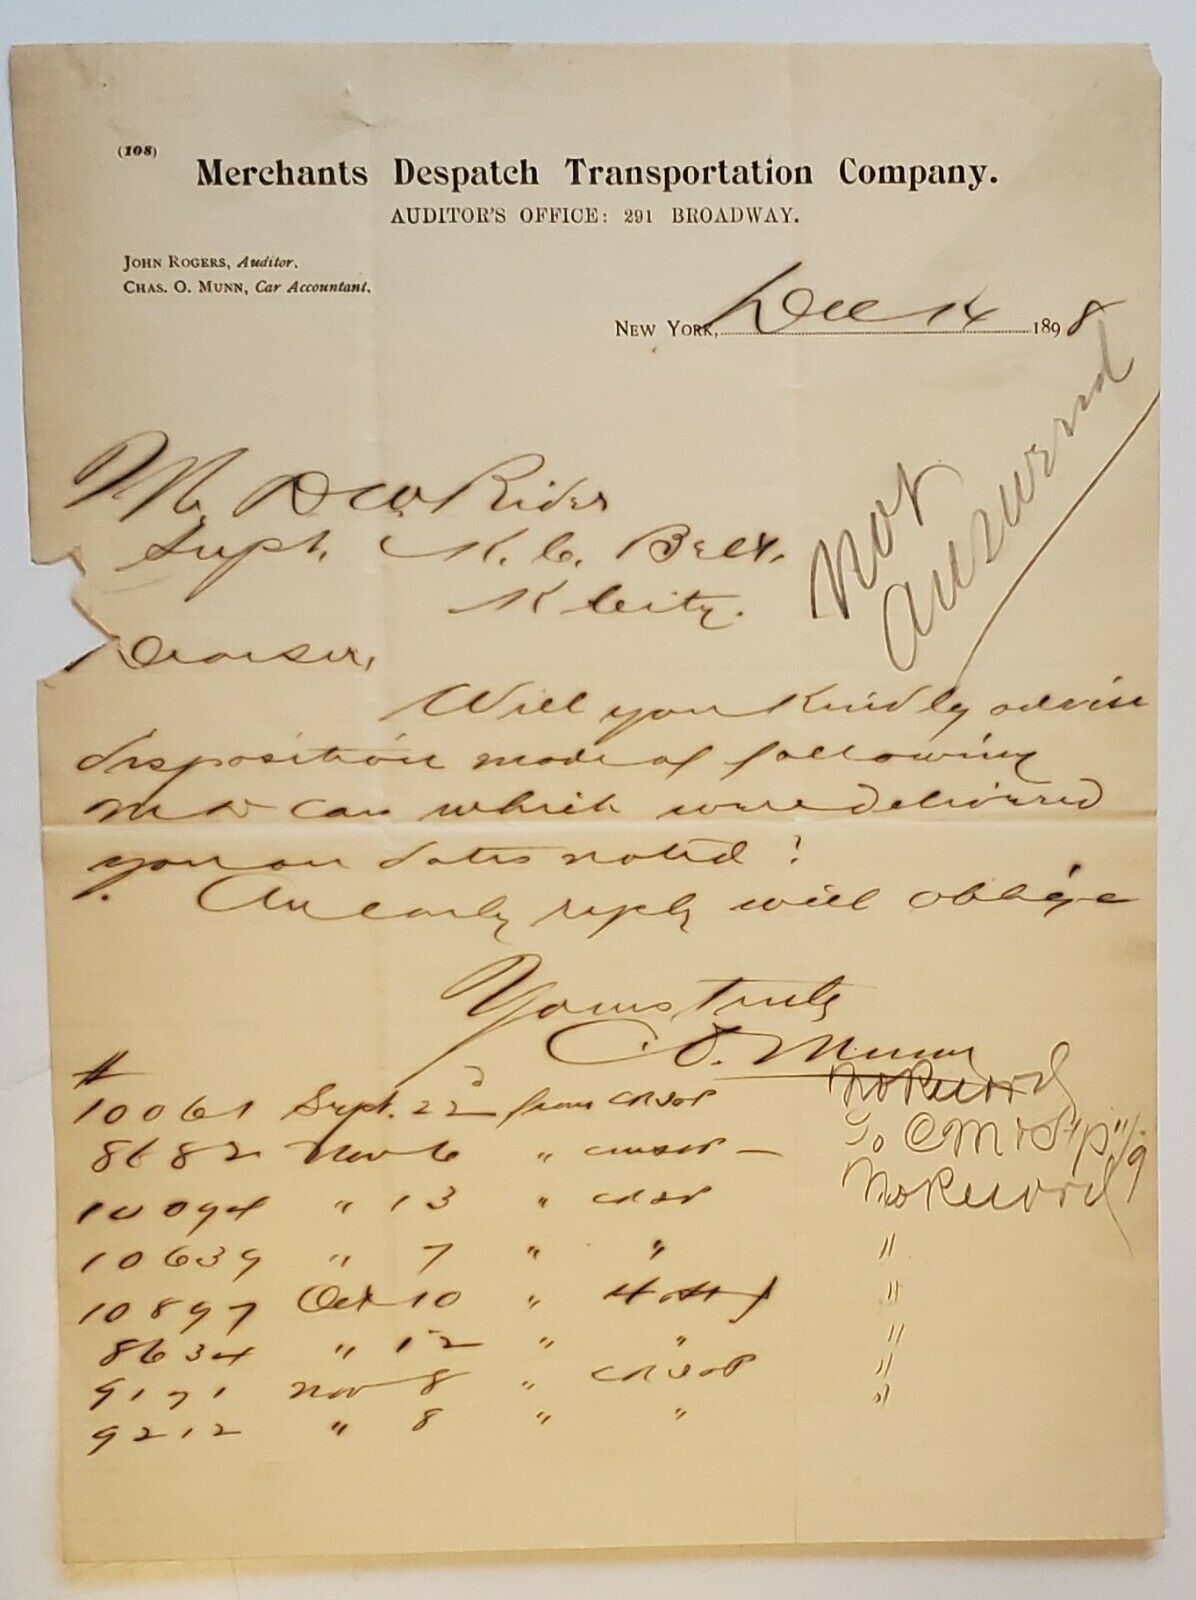 (108)
Merchants Despatch Transportation Company.
AUDITOR'S OFFICE: 291 BROADWAY.
JOHN ROGERS, Auditor.
CHAS. O. MUNN, Car Accountant.
New York, Dec 14 1898
Not
Answered
Mr. D W Rider
Supt. K. C. Belt.
K City.
Dear Sir,
Will you kindly advise
disposition made of following
M D cars which were delivered
you on dates noted?
An early reply will oblige
Yours truly
C. O. Munn
#
10061 Sept. 22 from No Record
8682 Nov 6 " — To CM & StP 11/9
10094 " 13 " No Record
10639 " 7 " " "
10897 Oct 10 " "
8634 " 12 " " "
9171 Nov 8 " "
9212 " 8 " " "